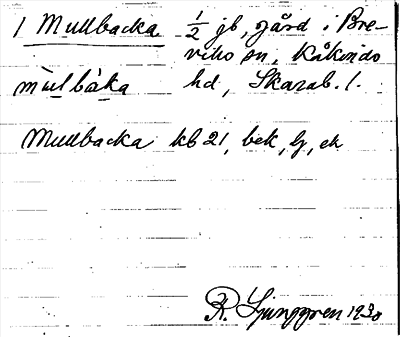 1 Mullbacka ½ jb, gård i Bre-
viks sn, Kåkinds
mùlbàka hd, Skarab. l.
Mullbacka kb 21, bek, lj, ek
R. Ljunggren 1930